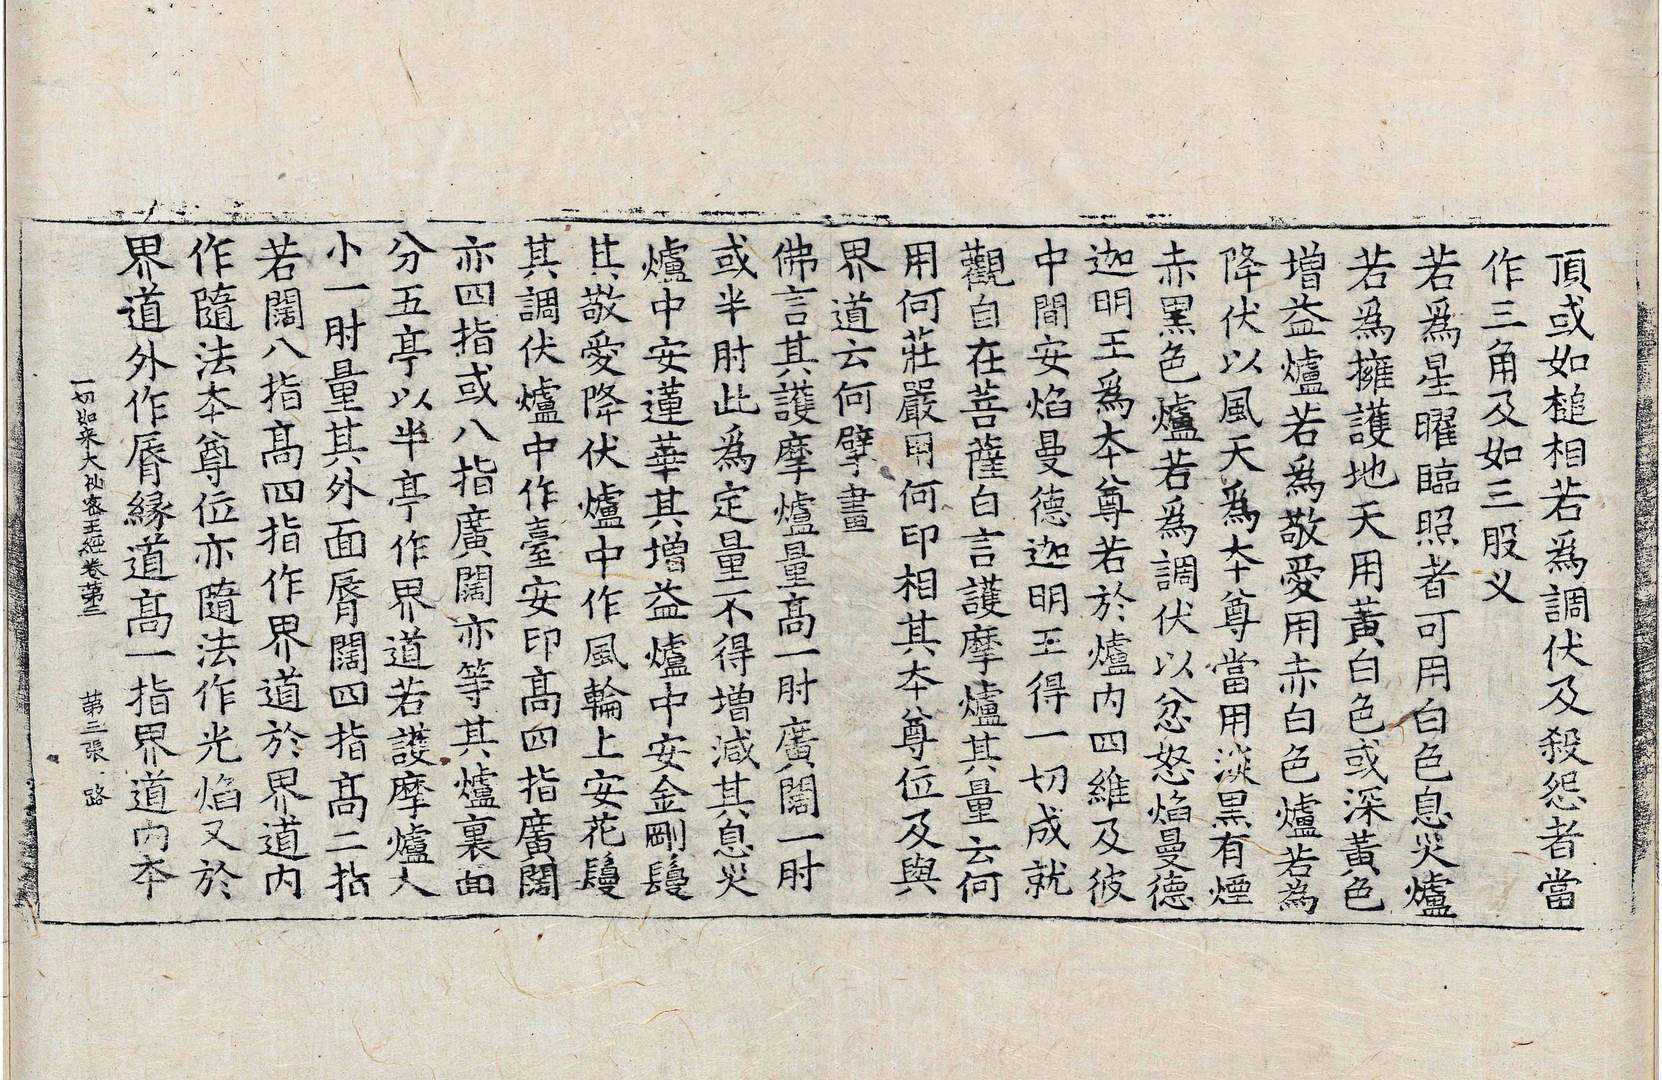 頂或如槌相若爲調伏及殺怨者當
作三角及如三股叉
若爲星曜臨照者可用白色息災爐
若爲擁護地天用黃白色或深黃色
增益爐若爲敬愛用赤白色爐若為
降伏以風天爲本尊當用淡黑有煙
赤黑色爐若爲調伏以忿怒焰曼德
迦明王爲本尊若於爐內四維及彼
中間安焰曼德迦明王得一切成就
觀自在菩薩白言護摩爐其量云何
用何莊嚴用何印相其本尊位及與
界道云何擘畫
佛言其護摩爐量高一肘廣闊一肘
或半肘此爲定量不得增減其息災
爐中安蓮華其增益爐中安金剛鬘
其敬愛降伏爐中作風輪上安花鬘
其調伏爐中作臺安印高四指廣闊
亦四指或八指廣闊亦等其爐裏面
分五亭以半亭作界道若護摩爐大
小一肘量其外面脣闊四指高二指
若闊八指高四指作界道於界道內
作隨法本尊位亦隨法作光焰又於
界道外作脣緣道高一指界道內本
一切如来大秘密王經卷第三　第三張　路